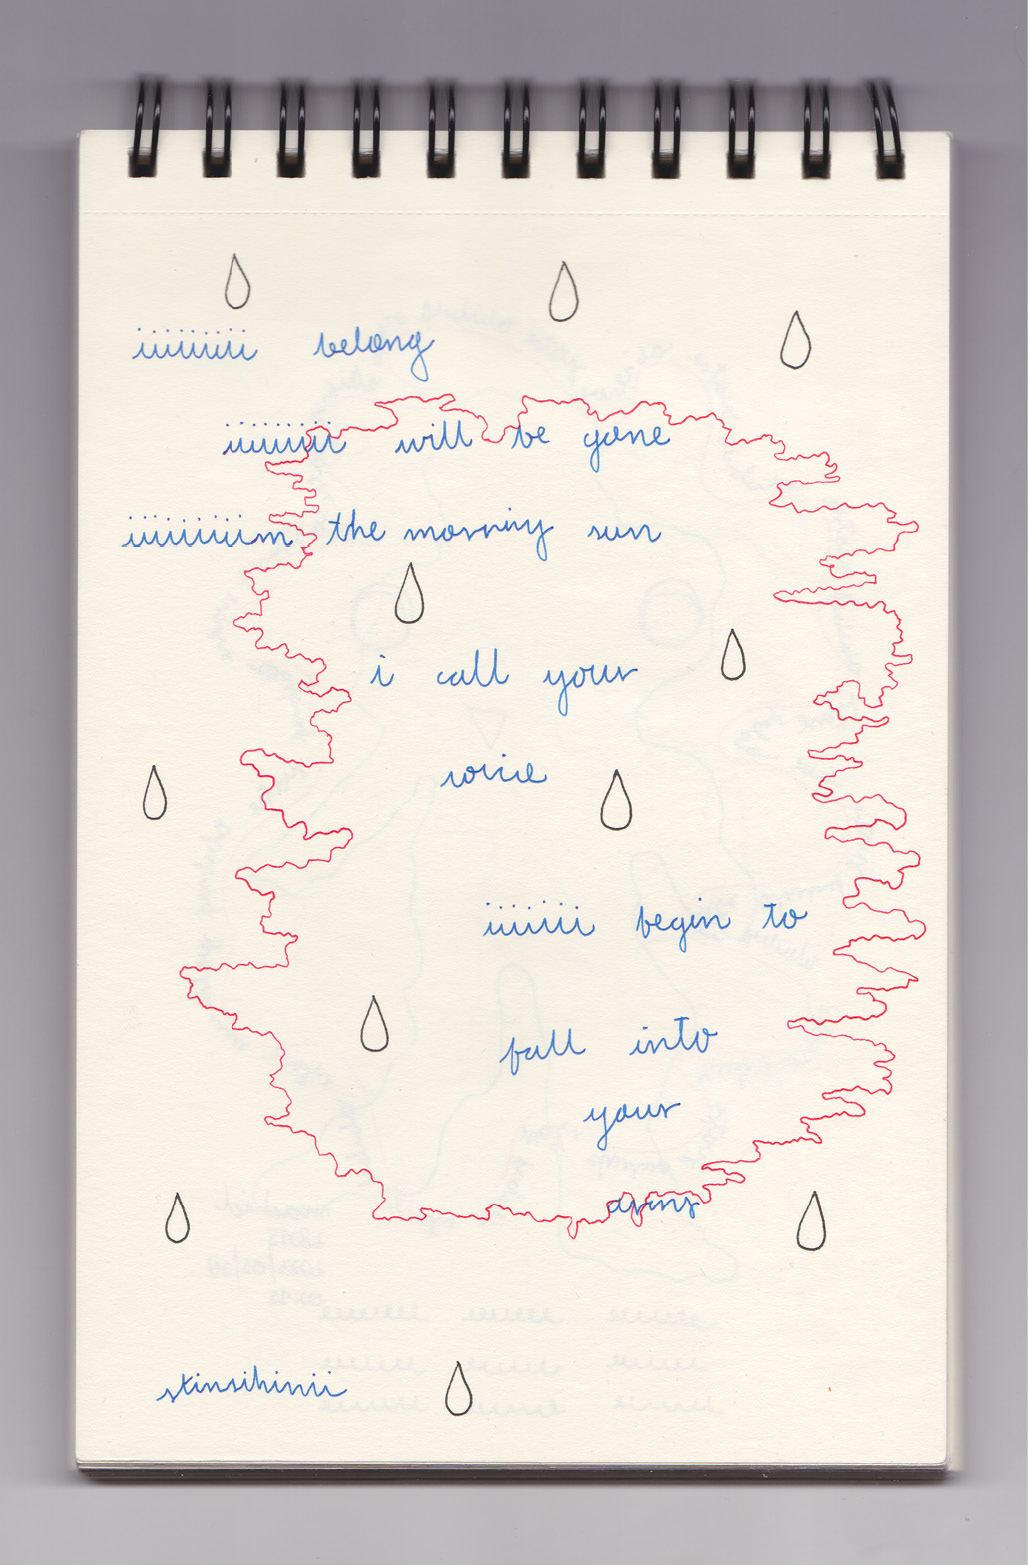 iiiiiiii belong
iiiiiiii will be gone
iiiiiiiim the morning sun
i call your
voice
iiiiiii begin to
fall into
your
arms
stinsihinii